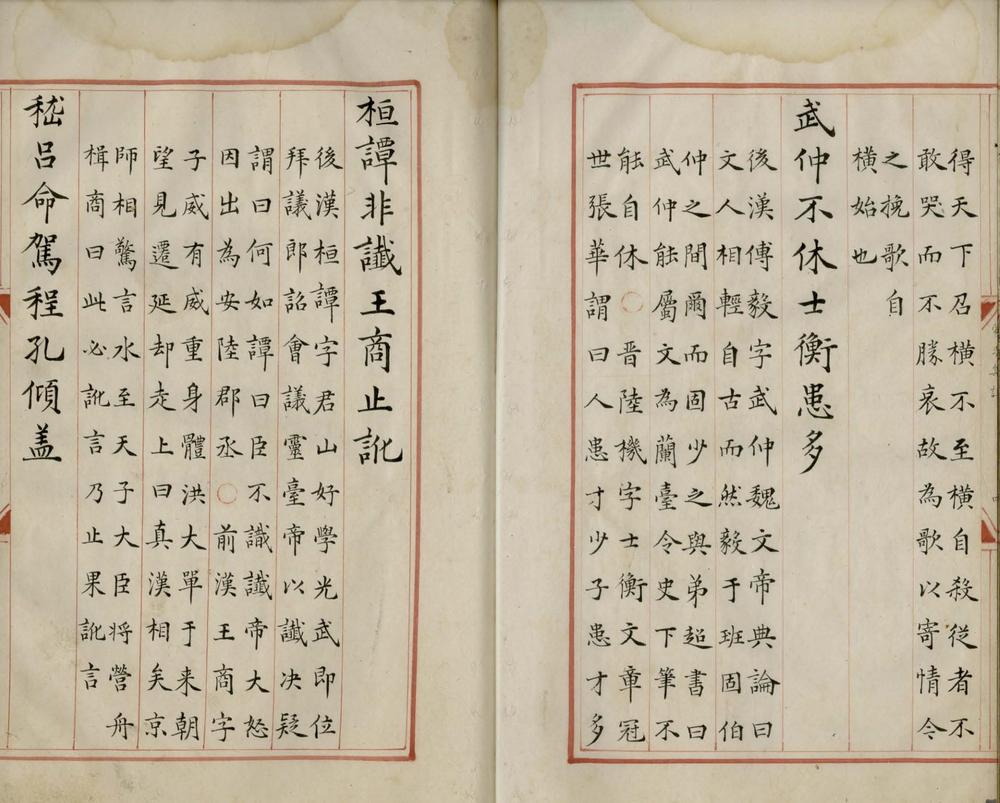 得天下召橫不至橫自殺從者不
敢哭而不勝哀故為歌以寄情令
之挽歌自
橫始也
武仲不休士衡患多
後漢傅毅字武仲魏文帝典論曰
文人相輕自古而然毅于班固伯
仲之間爾而固少之與弟超書曰
武仲能屬文為蘭臺令史下筆不
能自休〇晋陸機字士衡文章冠
世張華謂曰人患才少子患才多
桓譚非讖王商止訛
後漢桓譚字君山好學光武即位
拜議郎詔會議靈臺帝以讖决疑
謂曰何如譚曰臣不識讖帝大怒
因出為安陸郡丞〇前漢王商字
子威有威重身體洪大單于来朝
望見遷延却走上曰真漢相矣京
師相驚言水至天子大臣将營舟
楫商曰此必訛言乃止果訛言
嵇吕命駕程孔傾盖